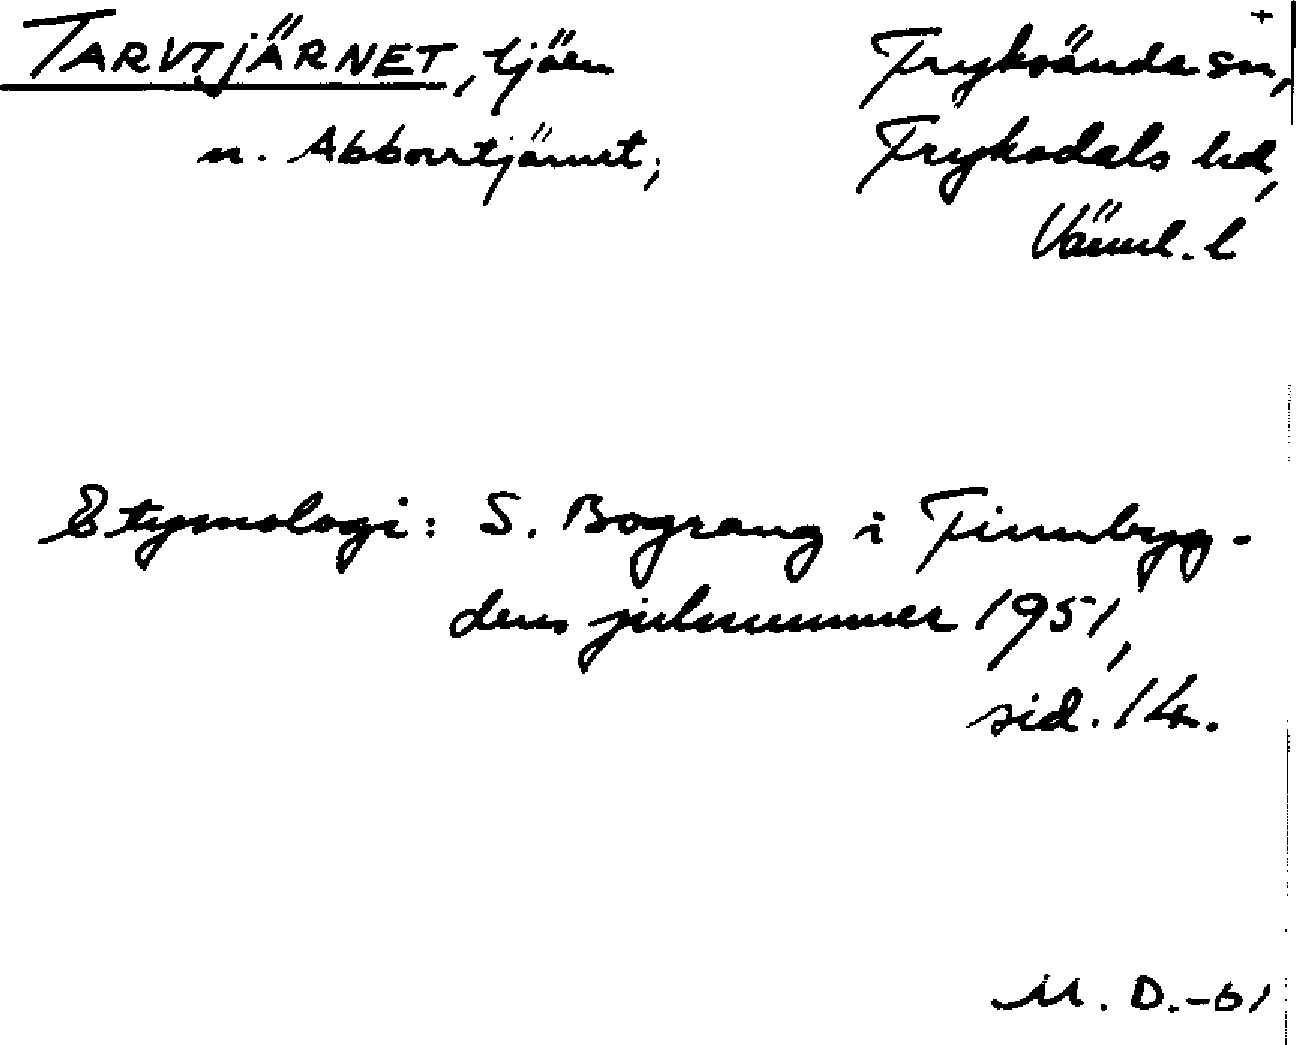 TARVTJÄRNET, tjärn
n. Abborrtjärnet;
Fryksände sn,
Fryksdals hd,
Värml. l
Etymologi: S. Bograng i Finnbyg-
dens julnummer 1951,
sid. 14.
M. D. -61